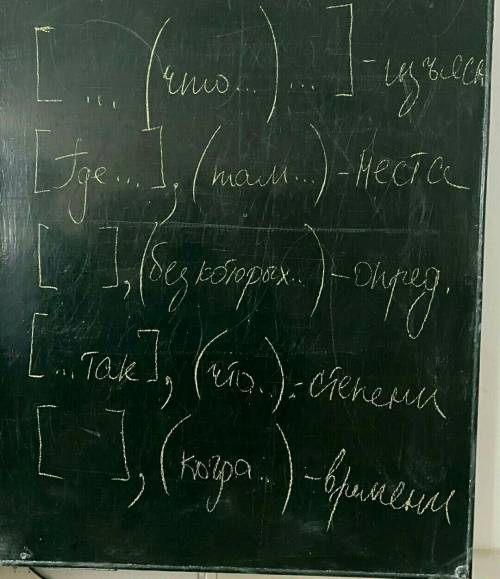 [ ... (что...) ... ] - изъясн
[Где...], (там...) - места
[ ], (без которых..) - опред.
[...так], (что...) - степени
[ ], (когда..) - времени